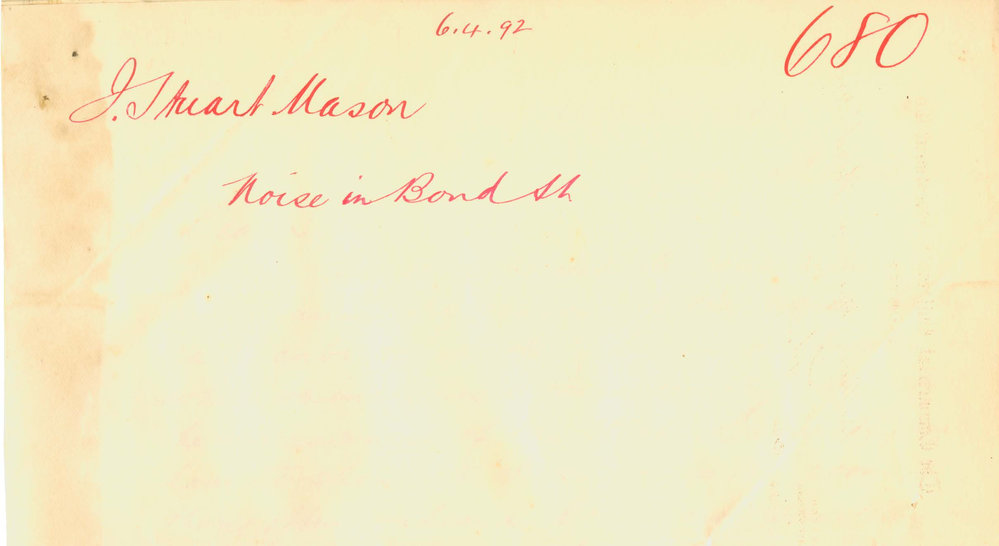 6.4.92
680
J. Stuart Mason
Noise in Bond St